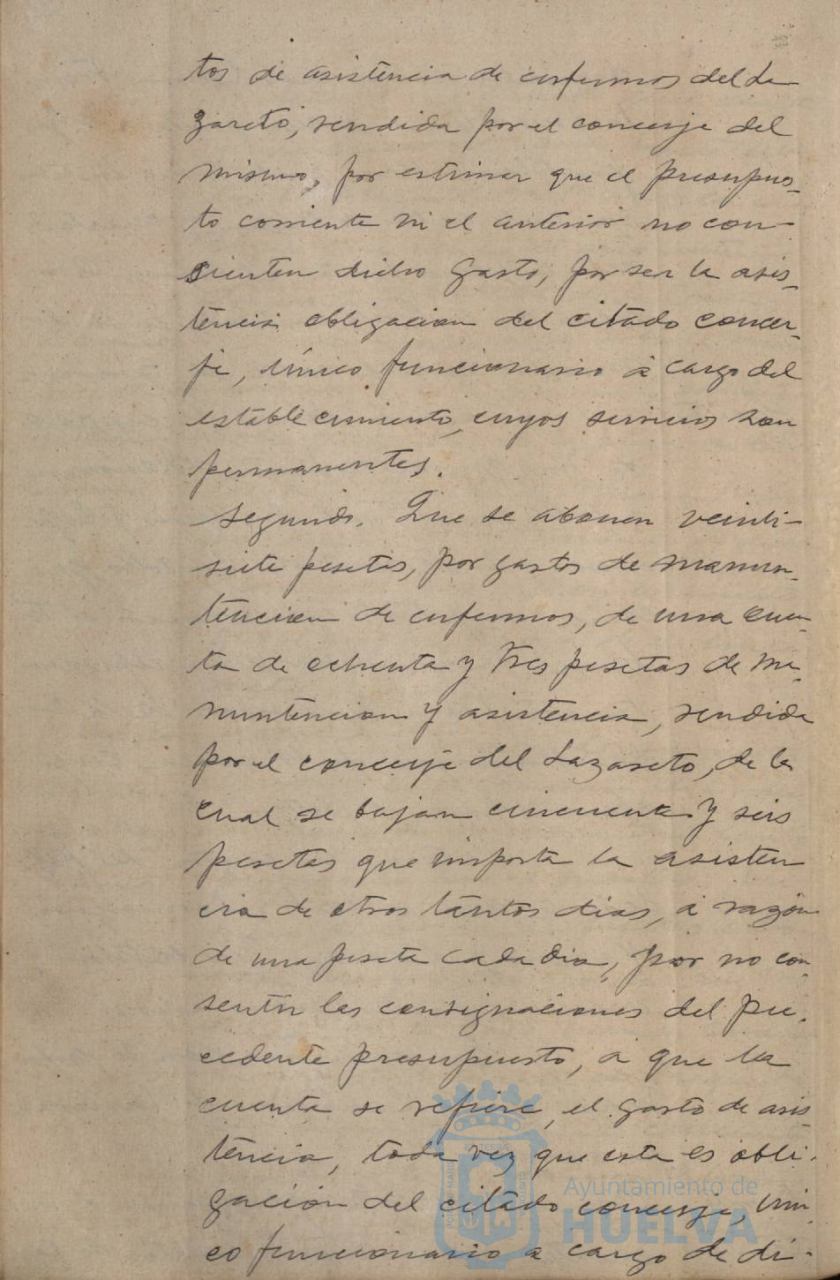 tos de asistencia de enfermos del La-
zareto, rendida por el conserje del
mismo, por estimar que el presupues-
to corriente ni el anterior no con-
sienten dicho gasto, por ser la asis-
tencia obligacion del citado conser-
je, único funcionario á cargo del
establecimiento, cuyos servicios son
permanentes.
Segundo. Que se abonen veinti-
siete pesetas, por gastos de manun-
tencion de enfermos, de una cuen-
ta de ochenta y tres pesetas de ma-
nuntencion y asistencia, rendida
por el conserje del Lazareto, de la
cual se bajan cincuenta y seis
pesetas que importa la asisten
cia de otros tantos dias, á razón
de una peseta cada dia, por no con
sentir las consignaciones del pre-
cedente presupuesto, á que la
cuenta se refiere, el gasto de asis
tencia, toda vez que esta es obli-
gación del citado conserje, úni-
co funcionario a cargo de di-
Ayuntamiento de
HUELVA